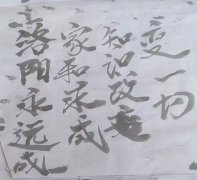 变一切
知识改变
家和求成
洛阳永远成